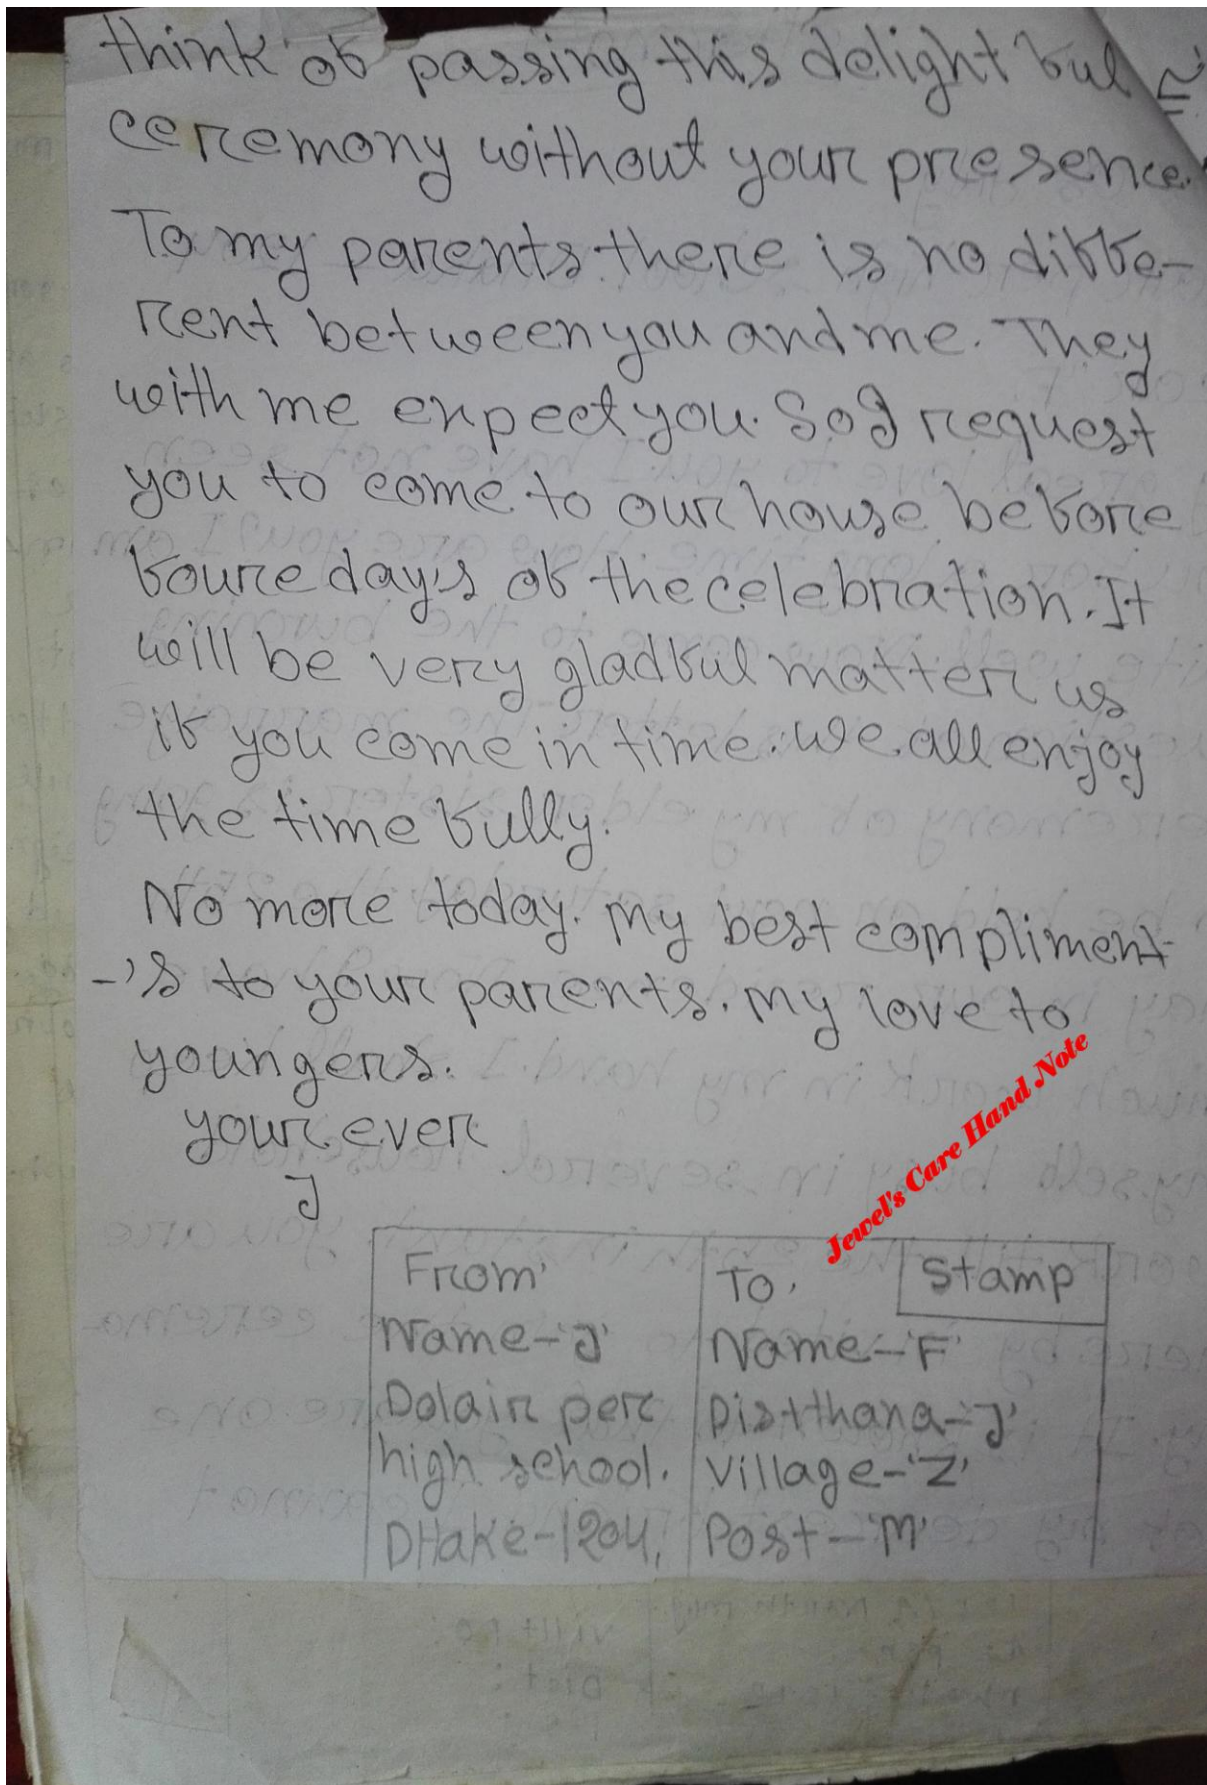 think of passing this delight ful
ceremony without your presence.
To my parents there is no diffe-
rent between you and me. They
with me expect you. So I request
you to come to our house before
foure day's of the celebration. It
will be very gladful matter us
if you come in time. We all enjoy
the time fully.
No more today. My best compliment-
-'s to your parents. My love to
youngers.
your ever
J
Jewel's Care Hand Note
From'
Name-'J'
Dolair per
high school.
DHake-1204.
To,
Stamp
Name-'F'
Dist+thana-'J'
Village-'Z'
Post-'M'